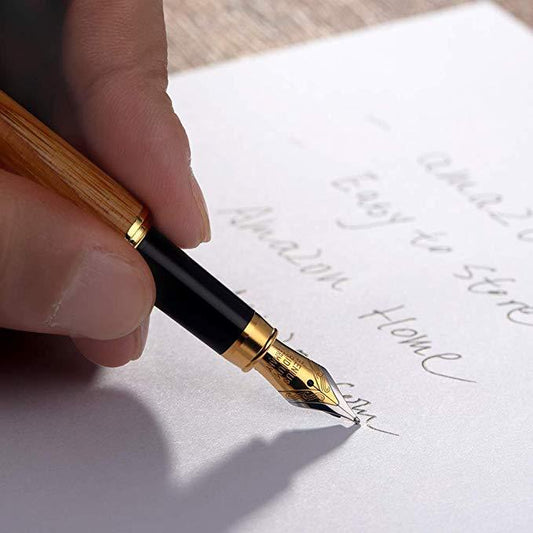 amazo
Easy to Store
Amazon Home
com